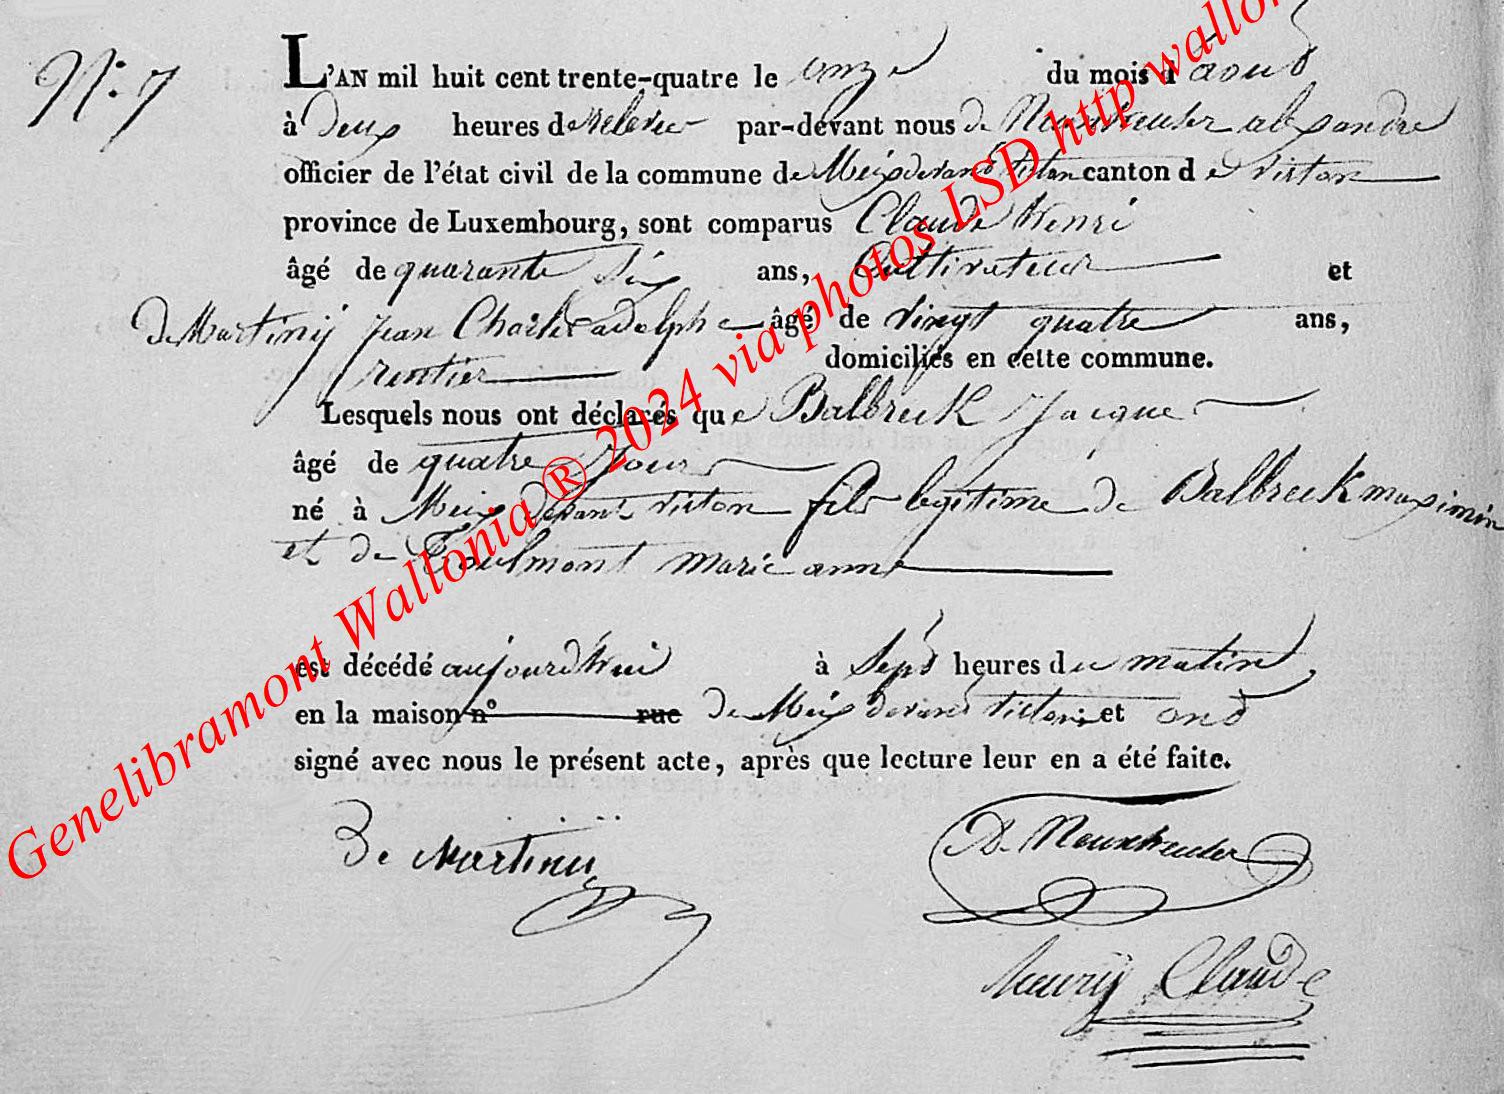 N.° 7
L'AN mil huit cent trente-quatre le onze du mois d'aoust
à deux heures de relevée par-devant nous de Nonheuser alexandre
officier de l'état civil de la commune de Meix devant virton canton de virton
province de Luxembourg, sont comparus Claude Henri
âgé de quarante six ans, Cultivateur et
de Martiny Jean Charles adolphe âgé de vingt quatre ans,
rentier domiciliés en cette commune.
Lesquels nous ont déclarés que Balbreck Jacque
âgé de quatre jours
né à Meix devant virton fils legitime de Balbreck maximin
et de Goulmont marie anne
est décédé aujourdhui à Sept heures du matin
en la maison n° rue de Meix devant virton, et ont
signé avec nous le présent acte, après que lecture leur en a été faite.
De Martinij
henrÿ Claude
Genelibramont Wallonia ® 2024 via photos LSD http wallon